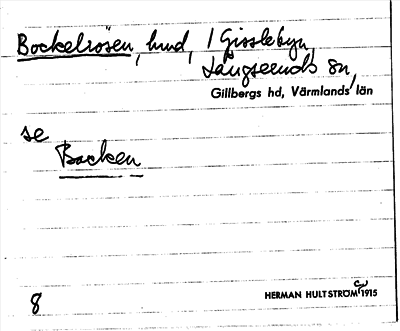 Bockelrösen, hmd, 1 Gisslebyn,
Långseruds sn,
Gillbergs hd, Värmlands län
se
Backen
8
HERMAN HULTSTRÖM 1915